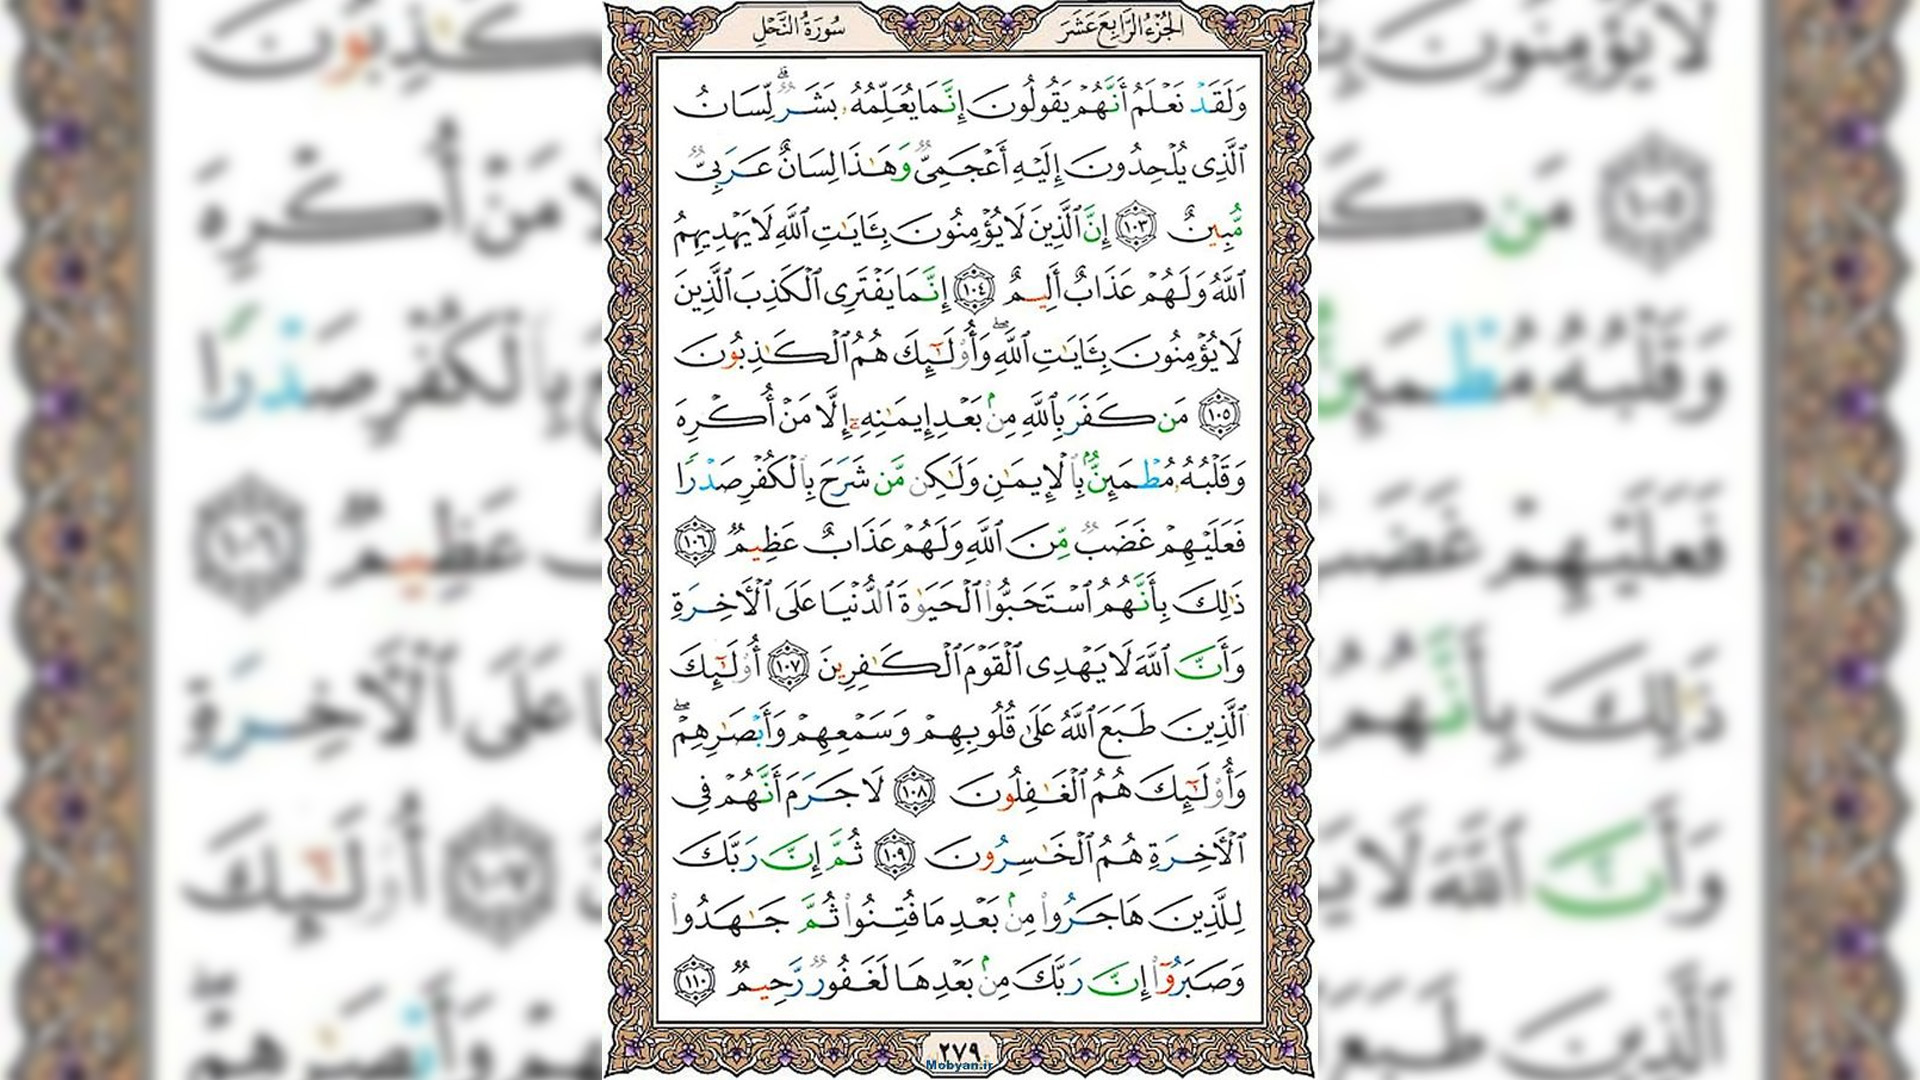 الجُزْءُ الرَّابِعَ عَشَرَ
سُورَةُ النَّحْلِ
وَلَقَدْ نَعْلَمُ أَنَّهُمْ يَقُولُونَ إِنَّمَا يُعَلِّمُهُۥ بَشَرٌ ۗ لِّسَانُ
ٱلَّذِى يُلْحِدُونَ إِلَيْهِ أَعْجَمِىٌّ وَهَـٰذَا لِسَانٌ عَرَبِىٌّ
مُّبِينٌ ﴿١٠٣﴾ إِنَّ ٱلَّذِينَ لَا يُؤْمِنُونَ بِـَٔايَـٰتِ ٱللَّهِ لَا يَهْدِيهِمُ
ٱللَّهُ وَلَهُمْ عَذَابٌ أَلِيمٌ ﴿١٠٤﴾ إِنَّمَا يَفْتَرِى ٱلْكَذِبَ ٱلَّذِينَ
لَا يُؤْمِنُونَ بِـَٔايَـٰتِ ٱللَّهِ ۖ وَأُو۟لَـٰٓئِكَ هُمُ ٱلْكَـٰذِبُونَ
﴿١٠٥﴾ مَن كَفَرَ بِٱللَّهِ مِنۢ بَعْدِ إِيمَـٰنِهِۦٓ إِلَّا مَنْ أُكْرِهَ
وَقَلْبُهُۥ مُطْمَئِنٌّۢ بِٱلْإِيمَـٰنِ وَلَـٰكِن مَّن شَرَحَ بِٱلْكُفْرِ صَدْرًا
فَعَلَيْهِمْ غَضَبٌ مِّنَ ٱللَّهِ وَلَهُمْ عَذَابٌ عَظِيمٌ ﴿١٠٦﴾
ذَٰلِكَ بِأَنَّهُمُ ٱسْتَحَبُّوا۟ ٱلْحَيَوٰةَ ٱلدُّنْيَا عَلَى ٱلْـَٔاخِرَةِ
وَأَنَّ ٱللَّهَ لَا يَهْدِى ٱلْقَوْمَ ٱلْكَـٰفِرِينَ ﴿١٠٧﴾ أُو۟لَـٰٓئِكَ
ٱلَّذِينَ طَبَعَ ٱللَّهُ عَلَىٰ قُلُوبِهِمْ وَسَمْعِهِمْ وَأَبْصَـٰرِهِمْ ۖ
وَأُو۟لَـٰٓئِكَ هُمُ ٱلْغَـٰفِلُونَ ﴿١٠٨﴾ لَا جَرَمَ أَنَّهُمْ فِى
ٱلْـَٔاخِرَةِ هُمُ ٱلْخَـٰسِرُونَ ﴿١٠٩﴾ ثُمَّ إِنَّ رَبَّكَ
لِلَّذِينَ هَاجَرُوا۟ مِنۢ بَعْدِ مَا فُتِنُوا۟ ثُمَّ جَـٰهَدُوا۟
وَصَبَرُوٓا۟ إِنَّ رَبَّكَ مِنۢ بَعْدِهَا لَغَفُورٌ رَّحِيمٌ ﴿١١٠﴾
٢٧٩
Mobyan.ir